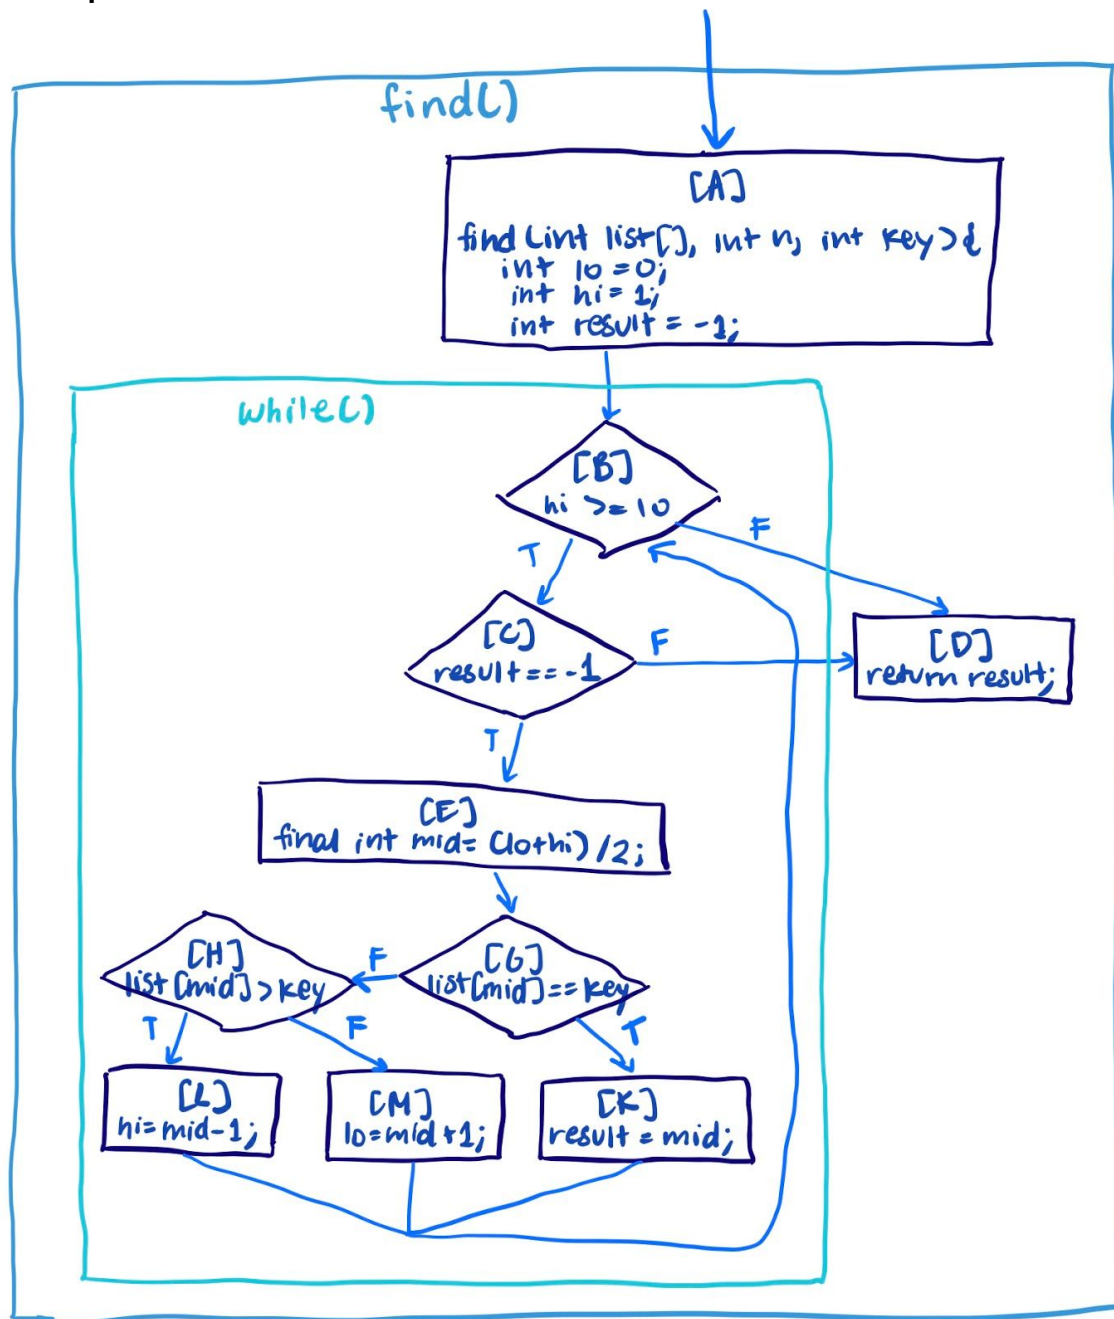 find()
[A]
find(int list[], int n, int key){
int lo=0;
int hi=1;
int result = -1;
while()
[B]
hi >= lo
F
T
[C]
result == -1
F
[D]
return result;
T
[E]
final int mid= (lo+hi)/2;
[H]
list[mid]>key
F
[G]
list[mid]==key
T
F
T
[L]
hi=mid-1;
[M]
lo=mid+1;
[K]
result = mid;